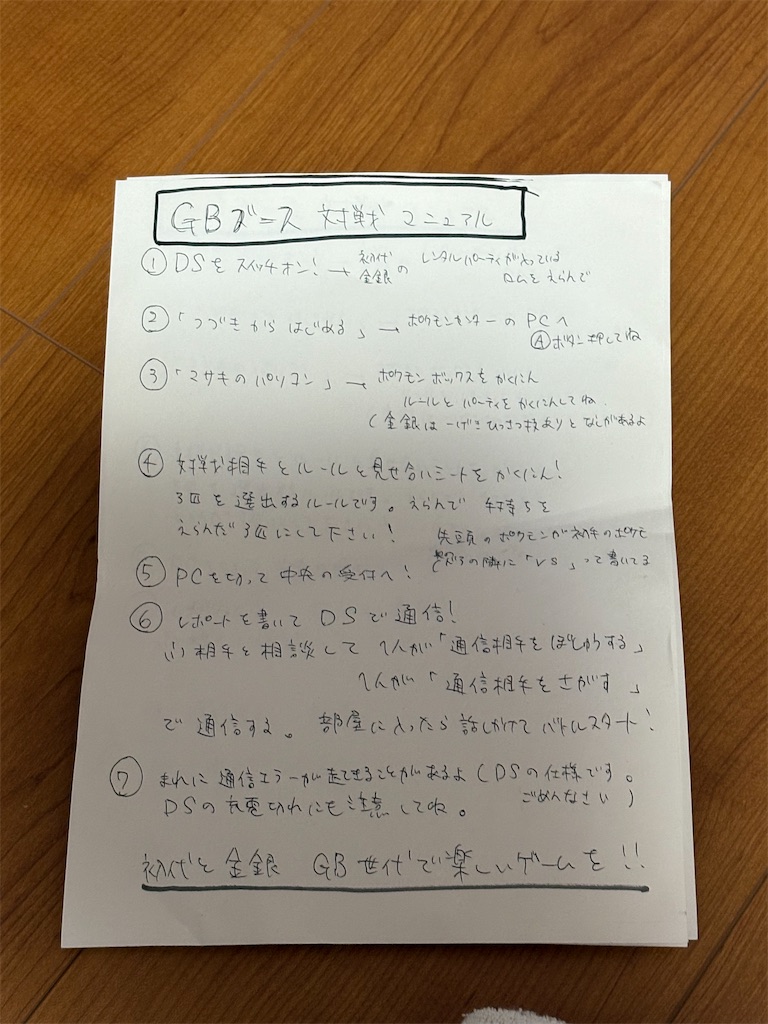 GBブース 対戦マニュアル
① DSをスイッチオン! → 初代
金銀の レンタルパーティが入っている
ロムをえらんで
② 「つづきからはじめる」 → ポケモンセンターのPCへ
Ⓐボタン押してね
③ 「マサキのパソコン」 → ポケモンボックスをかくにん
ルールとパーティをかくにんしてね.
(金銀は一げきひっさつ技ありとなしがあるよ
④ 対戦相手とルールと見せ合いシートをかくにん!
3匹を選出するルールです。えらんで 手持ちを
えらんだ3匹にして下さい!
先頭のポケモンが初手のポケモ
の隣に「VS」って書いてる
⑤ PCを切って中央の受付へ!
⑥ レポートを書いてDSで通信!
(1)相手と相談して 1人が「通信相手をぼしゅうする」
1人が「通信相手をさがす」
で通信する。部屋に入ったら話しかけてバトルスタート!
⑦ まれに通信エラーが起きることがあるよ(DSの仕様です。
ごめんなさい)
DSの充電切れにも注意してね。
初代と金銀 GB世代で楽しいゲームを!!